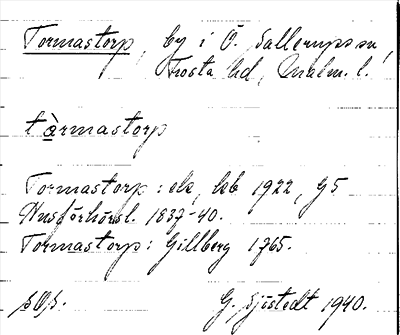 Tormastorp, by i Ö. Sallerups sn,
Frosta hd, Malm. l.
tàrmastorp
Tormastorp: ek, lsb 1922, G5
Husförhörsl. 1837-40.
Tormastorp: Gillberg 1765.
G. Sjöstedt 1940.